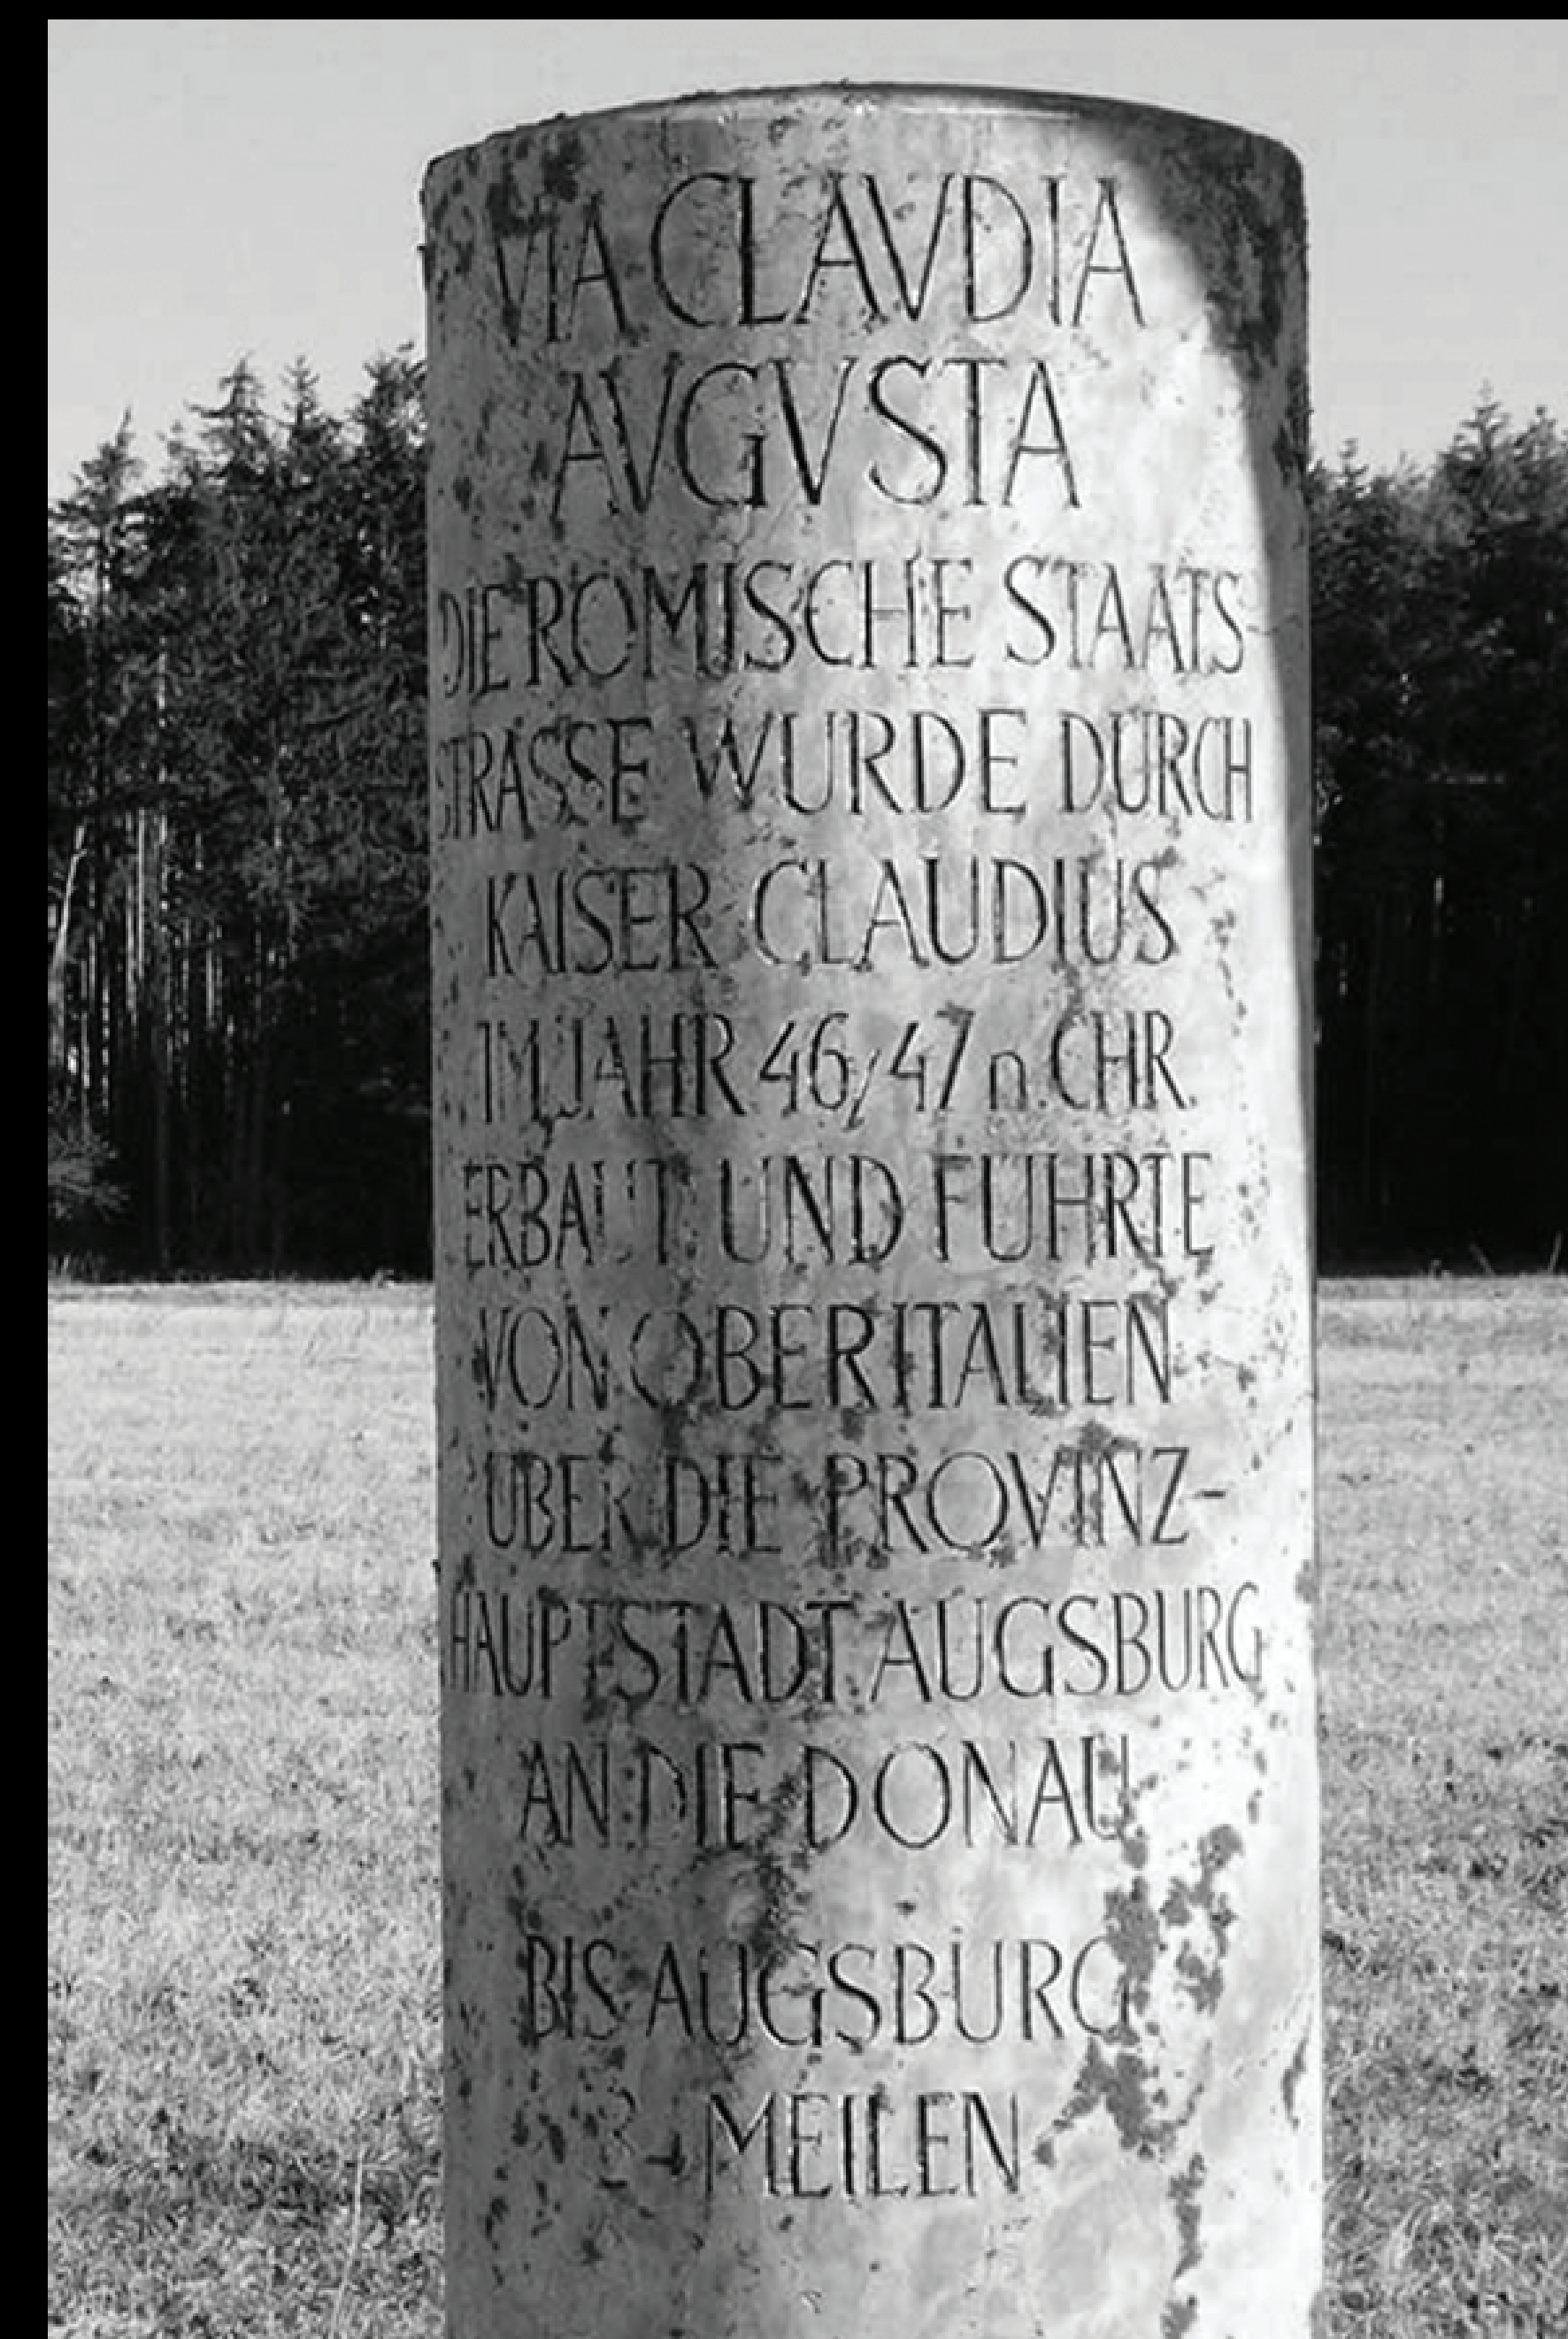 VIA CLAVDIA
AVGVSTA
DIE ROMISCHE STAATS
STRASSE WURDE DURCH
KAISER CLAUDIUS
IM JAHR 46/47 n. CHR.
ERBAUT UND FUHRTE
VON OBERITALIEN
UBER DIE PROVINZ-
HAUPTSTADT AUGSBURG
AN DIE DONAU
BIS AUGSBURG
MEILEN